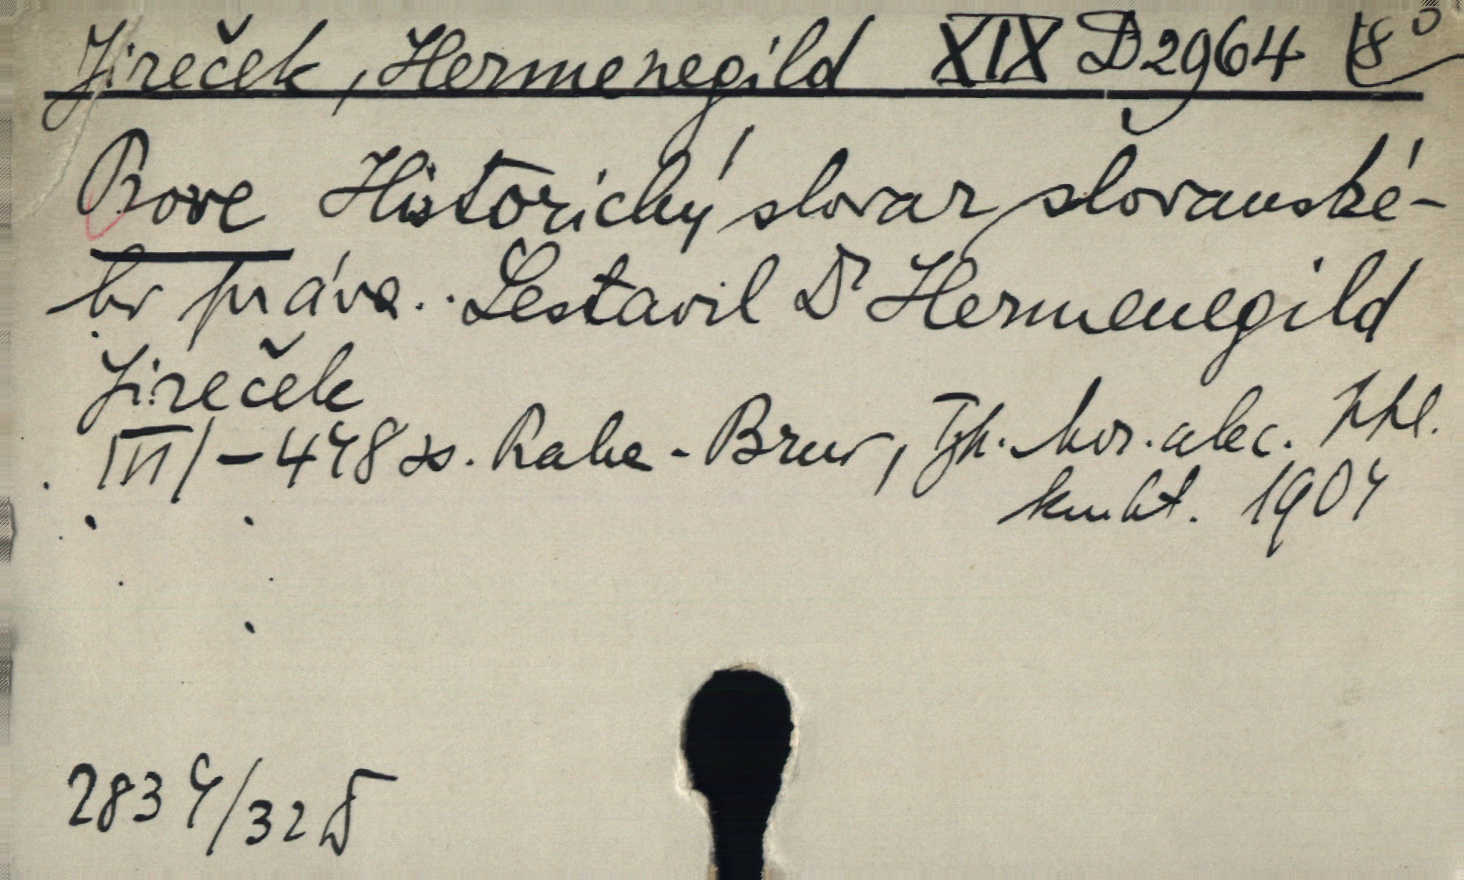 Jireček, Hermenegild XIX D 2964 8°
Prove Historický slovar slovanské-
ho práva.. Sestavil Dr Hermenegild
Jireček
|VII| - 478 ss. Praha - Brno, Tjh. Mor. akc.
kniht. 1904
2834/32